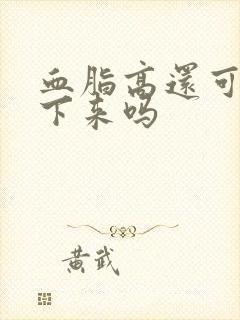 血脂高還可
下来吗
黄武